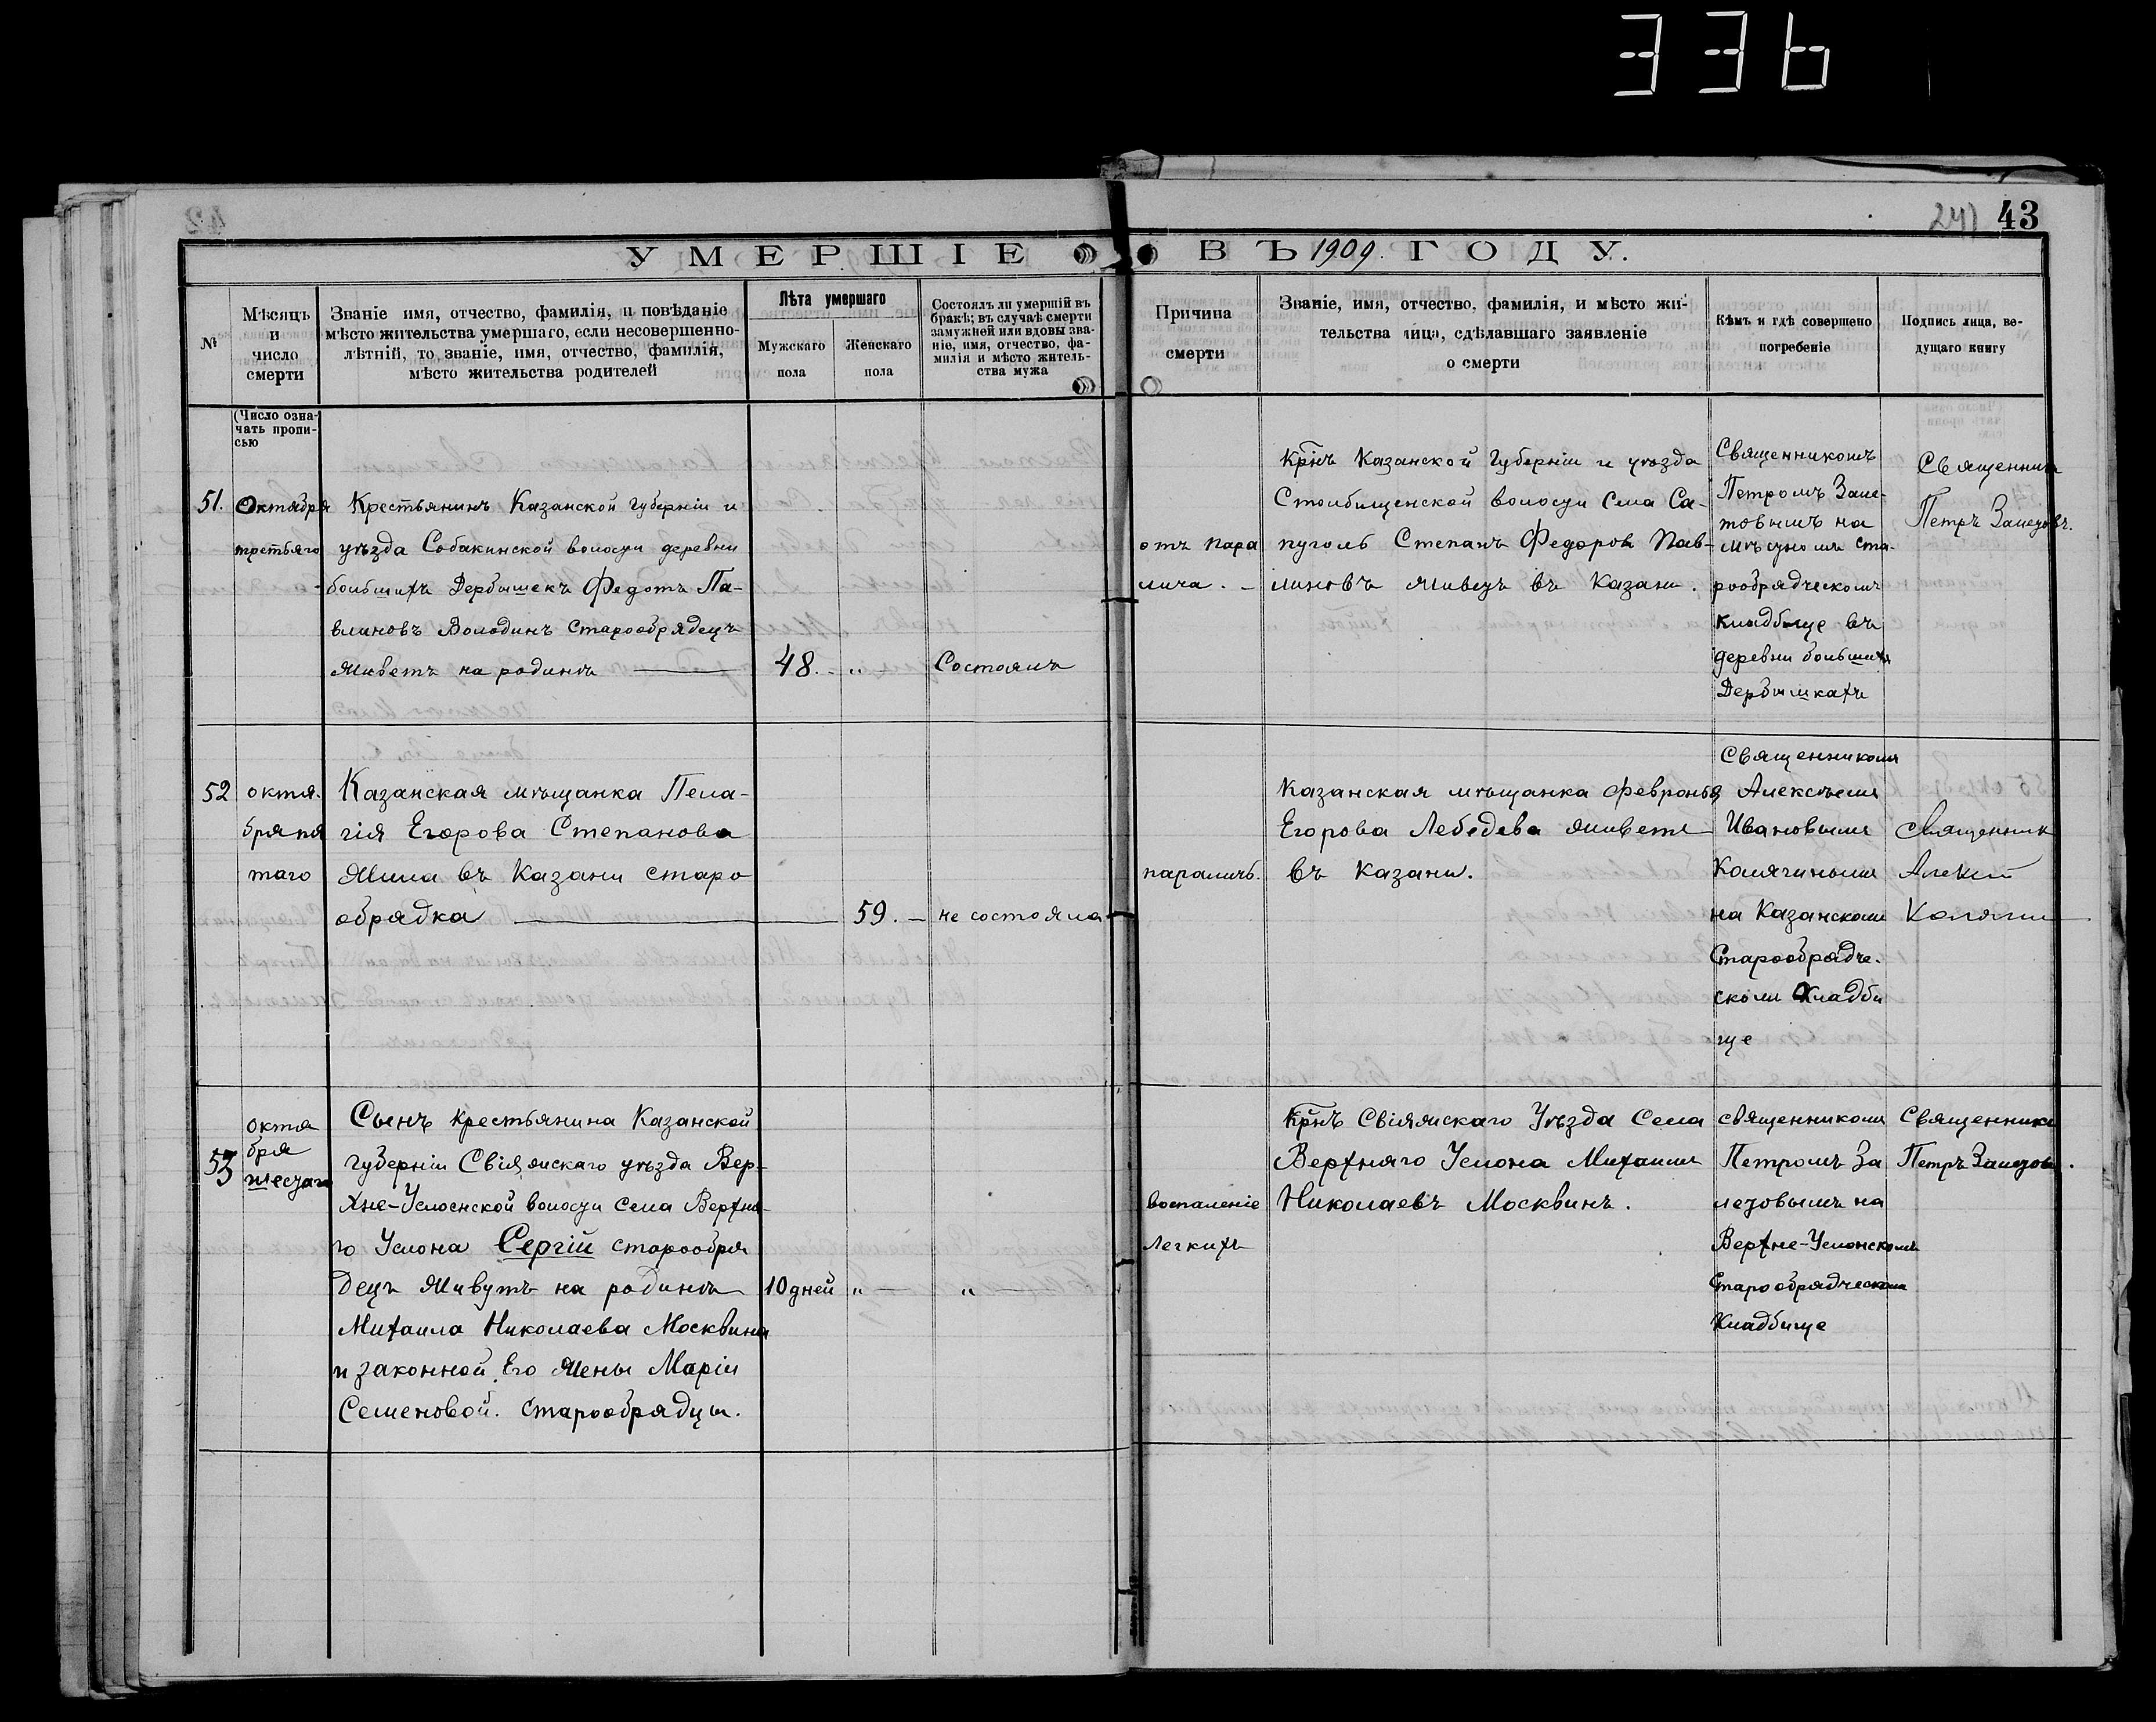 336
241 43
УМЕРШІЕ ВЪ 1909. ГОДУ.
№
Мѣсяцъ
и
число
смерти
Званіе имя, отчество, фамилія, и повѣданіе
мѣсто жительства умершаго, если несовершенно-
лѣтній, то званіе, имя, отчество, фамилія,
мѣсто жительства родителей
Лѣта умершаго
Мужскаго
пола
Женскаго
пола
Состоялъ ли умершій въ
бракѣ; въ случаѣ смерти
замужней или вдовы зва-
ніе, имя, отчество, фа-
милія и мѣсто житель-
ства мужа
Причина
смерти
Званіе, имя, отчество, фамилія, и мѣсто жи-
тельства лица, сдѣлавшаго заявленіе
о смерти
Кѣмъ и гдѣ совершено
погребеніе
Подпись лица, ве-
дущаго книгу
(Число озна-
чать пропи-
сью
51.
Октября
третьяго
Крестьянинъ Казанской губерніи и
уѣзда Собакинской волости деревни
большихъ Дербышекъ Федотъ Па-
влиновъ Володинъ старообрядецъ
живетъ на родинѣ
48. - „
Состоялъ
отъ пара
лича. -
Крнъ Казанской Губерніи и уѣзда
Столбищенской волости Села Са-
пуголь Степанъ Федоровъ Пав-
линовъ живетъ въ Казани.
Священникомъ
Петромъ Зале-
товымъ на
мѣстномъ ста-
рообрядческомъ
кладбище въ
деревни большихъ
Дербышкахъ
Священникъ
Петръ Залетовъ.
52
октя.
бря пя
таго
Казанская мѣщанка Пела-
гія Егорова Степанова
жила въ Казани старо
обрядка
59. -
не состояла
параличъ.
Казанская мѣщанка Февронья
Егорова Лебедева живетъ
въ Казани.
Священникомъ
Алексѣемъ
Ивановымъ
Калягинымъ
на Казанскомъ
Старообрядче.
скомъ Кладби
ще
Священник
Алексій
Калягин
53
октя
бря
шестаго
Сынъ крестьянина Казанской
губерніи Свіяжскаго уѣзда Вер-
хне-Услонской волости села Верхня-
го Услона Сергій старообря
децъ живутъ на родинѣ
Михаила Николаева Москвина
и законной Его жены Маріи
Семеновой. старообрядцы.
10 дней „ - „
воспаленіе
легкихъ
Крнъ Свіяжскаго Уѣзда Села
Верхняго Услона Михаилъ
Николаевъ Москвинъ.
священникомъ
Петромъ За
летовымъ на
Верхне-Услонскомъ
Старообрядческомъ
Кладбище
Священникъ
Петръ Залетовъ.